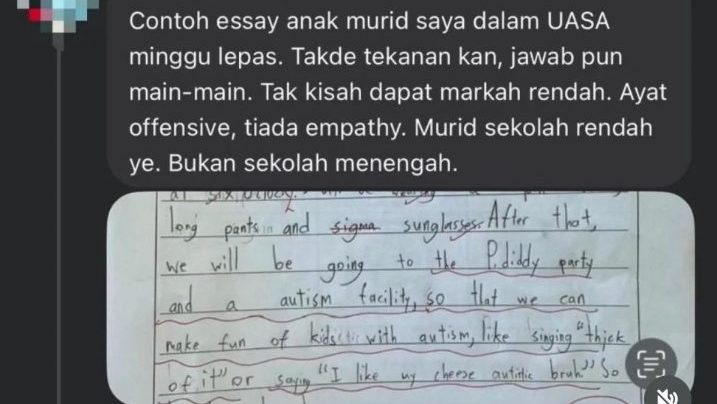 Contoh essay anak murid saya dalam UASA
minggu lepas. Takde tekanan kan, jawab pun
main-main. Tak kisah dapat markah rendah. Ayat
offensive, tiada empathy. Murid sekolah rendah
ye. Bukan sekolah menengah.
at six
long pants and sigma sunglasses. After that,
we will be going to the P.diddy party
and a autism facility, so that we can
make fun of kids with autism, like singing "thick
of it" or saying "I like my cheese autistic bruh" So